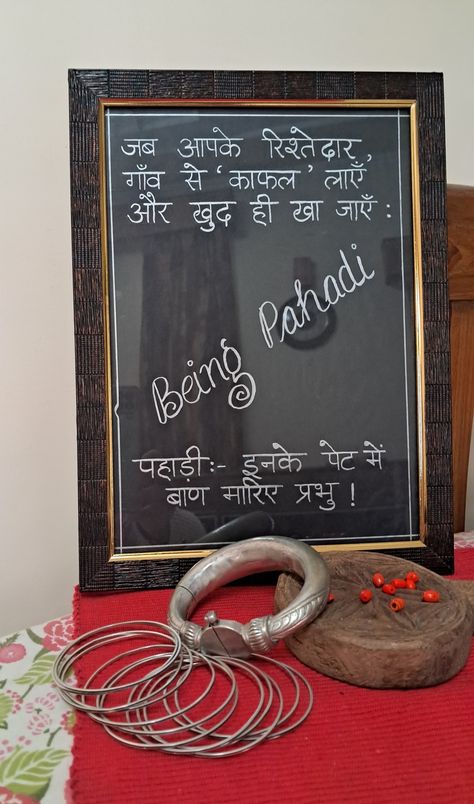 जब आपके रिश्तेदार,
गाँव से 'काफल' लाएँ
और खुद ही खा जाएँ :
Being Pahadi
पहाड़ी:- इनके पेट में
बाण मारिए प्रभु !